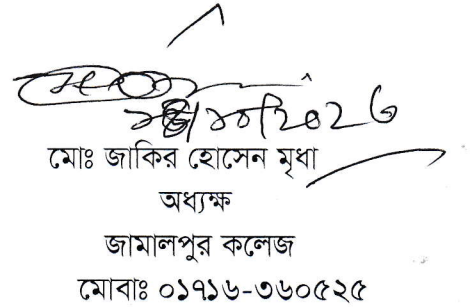 মোঃ জাকির হোসেন মৃধা
অধ্যক্ষ
জামালপুর কলেজ
মোবাঃ ০১৭১৬-৩৬০৫২৫